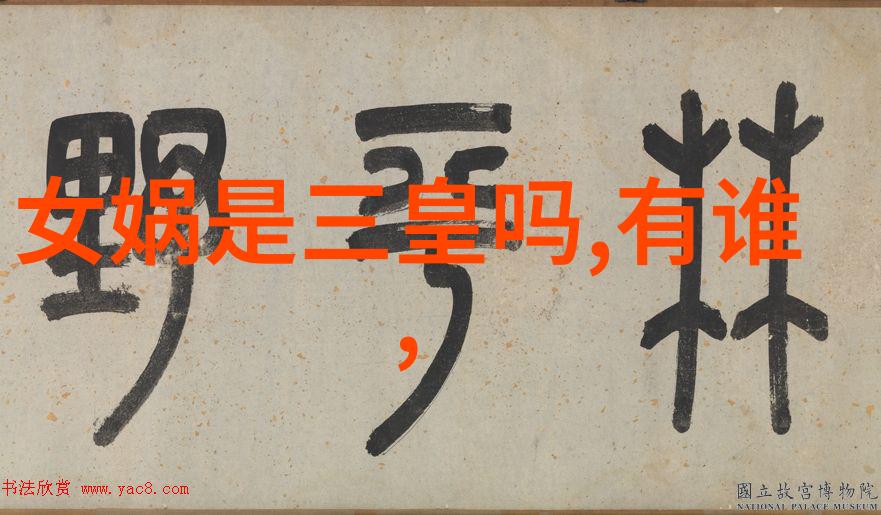 女娲是三皇吗,有谁
,
野平林
书法欣赏 www.yac8.com
國立故宮博物院
NATIONAL PALACE MUSEUM